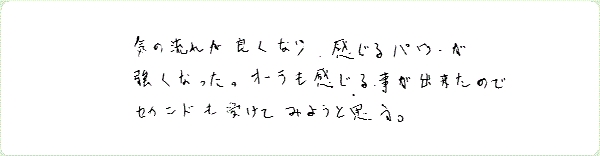 気の流れが良くなり、感じるパワーが
強くなった。オーラも感じる事が出来たので
セカンドも受けてみようと思う。